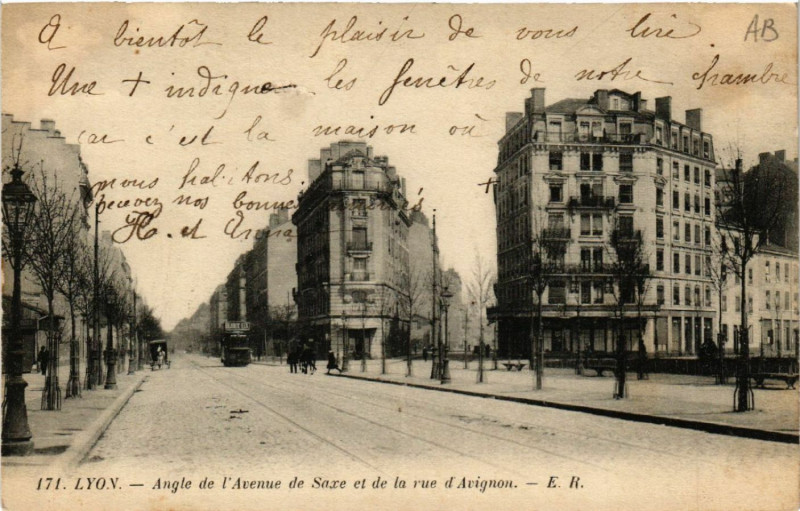 A bientôt le plaisir de vous lire.
AB
Une + indique les fenêtres de notre chambre
car c'est la maison où
nous habitons.
recevez nos bonnes amitiés +
H. et
171. LYON. — Angle de l'Avenue de Saxe et de la rue d'Avignon. — E. R.